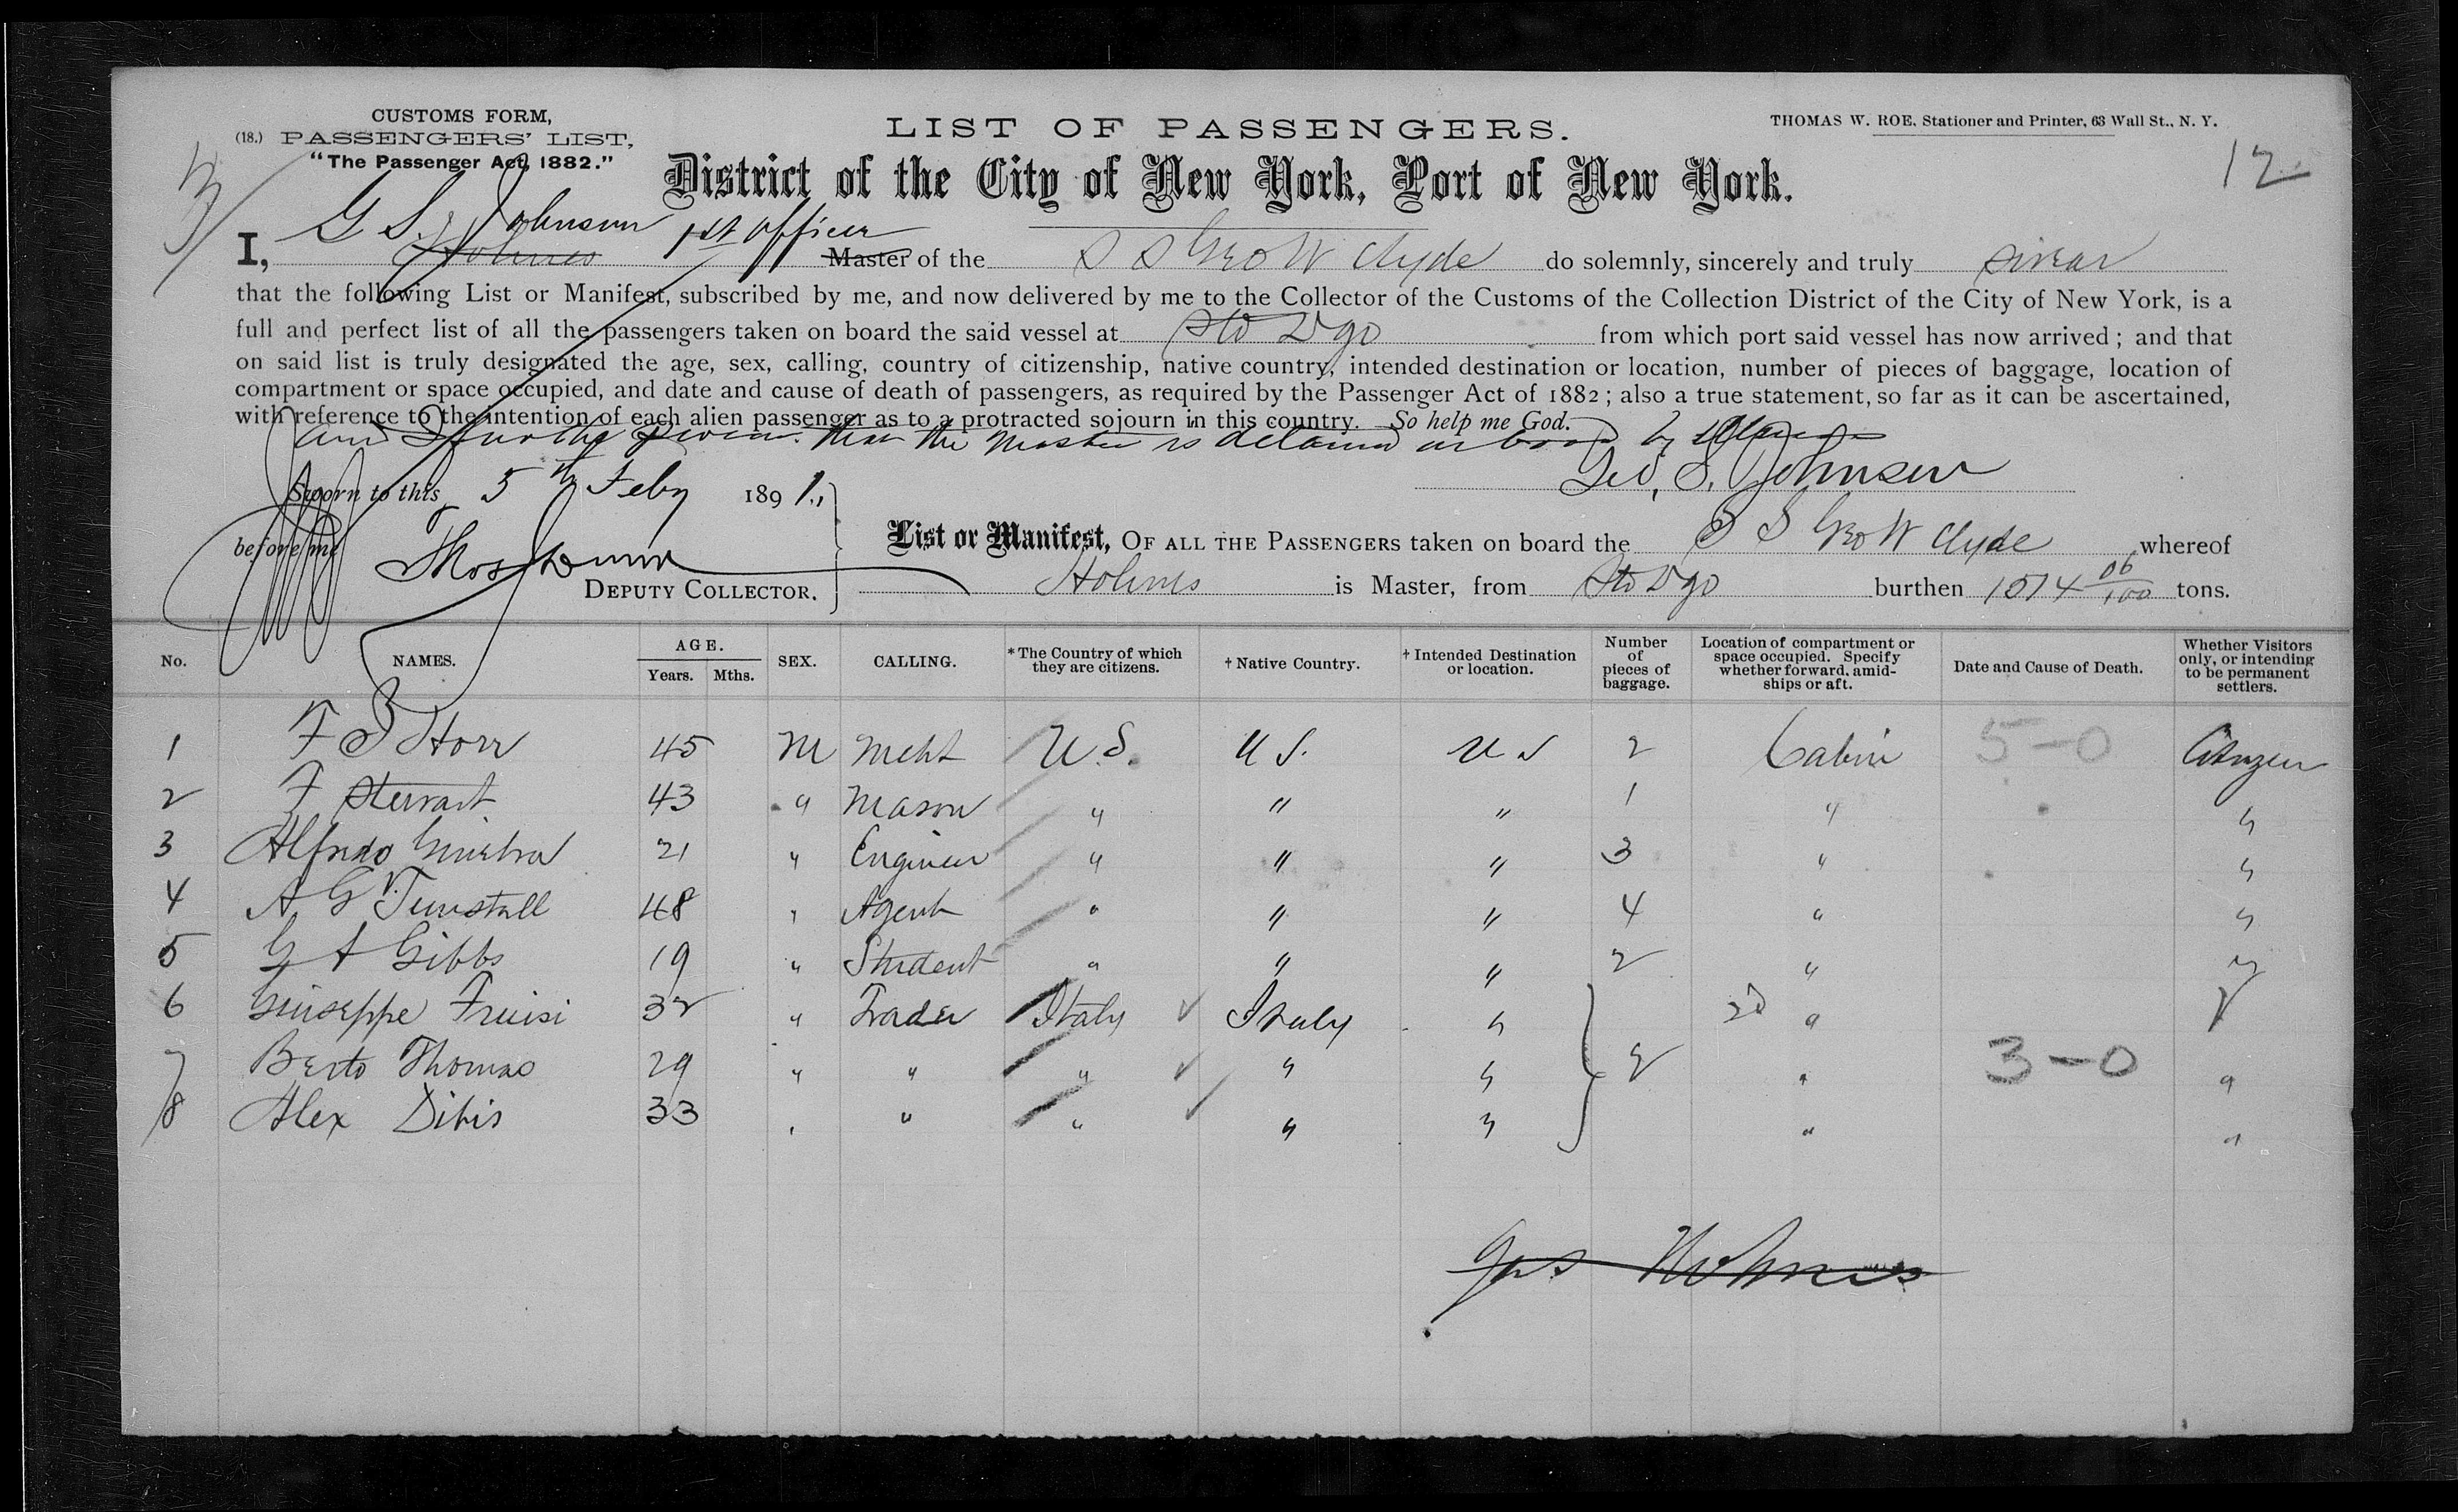 CUSTOMS FORM,
(18.) PASSENGERS' LIST,
"The Passenger Act, 1882."
LIST OF PASSENGERS.
THOMAS W. ROE, Stationer and Printer, 63 Wall St., N. Y.
12
District of the City of New York, Port of New York.
G S. Johnson 1st Officer
I, Holmes Master of the S S Geo W Clyde do solemnly, sincerely and truly swear
that the following List or Manifest, subscribed by me, and now delivered by me to the Collector of the Customs of the Collection District of the City of New York, is a
full and perfect list of all the passengers taken on board the said vessel at Sto Dgo from which port said vessel has now arrived; and that
on said list is truly designated the age, sex, calling, country of citizenship, native country, intended destination or location, number of pieces of baggage, location of
compartment or space occupied, and date and cause of death of passengers, as required by the Passenger Act of 1882; also a true statement, so far as it can be ascertained,
with reference to the intention of each alien passenger as to a protracted sojourn in this country. So help me God.
and further swear that the Master is detained on board by
Geo. S. Johnson
Sworn to this 5th Feby 1891.,
before me Thos Dunn
DEPUTY COLLECTOR.
List or Manifest, OF ALL THE PASSENGERS taken on board the S S Geo W Clyde whereof
Holmes is Master, from Sto Dgo burthen 1574 06/100 tons.
No. NAMES. AGE. Years. Mths. SEX. CALLING. *The Country of which they are citizens. † Native Country. † Intended Destination or location. Number of pieces of baggage. Location of compartment or space occupied. Specify whether forward, amid-ships or aft. Date and Cause of Death. Whether Visitors only, or intending to be permanent settlers.
1 F S Horr 45 M Mcht U.S. U S. U S 2 Cabin 5-0 Citizen
2 F Stewart 43 " Mason " " " 1 " "
3 Alfredo Ginebra 21 " Engineer " " " 3 " "
4 A G Tunstall 48 " Agent " " " 4 " "
5 G A Gibbs 19 " Student " " " 2 " "
6 Giuseppe 32 " Trader Italy Italy " 2d "
7 Berto Thomas 29 " " " " " 2 " 3-0 "
8 Alex 33 " " " " " " "
Jas Holmes